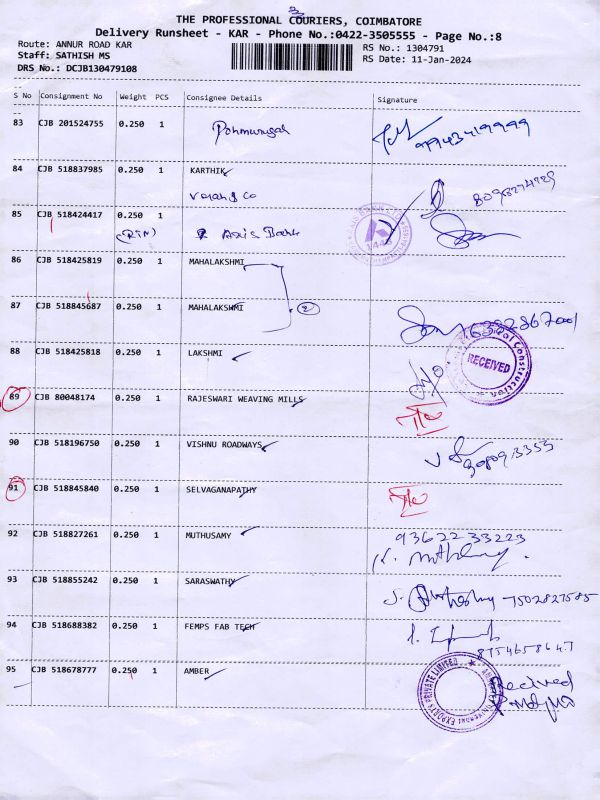 THE PROFESSIONAL COURIERS, COIMBATORE
Delivery Runsheet - KAR - Phone No.:0422-3505555 - Page No.:8
Route: ANNUR ROAD KAR
RS No.: 1304791
Staff: SATHISH MS
RS Date: 11-Jan-2024
DRS No.: DCJB130479108
S No Consignment No Weight PCS Consignee Details Signature
83 CJB 201524755 0.250 1
84 CJB 518837985 0.250 1 KARTHIK
85 CJB 518424417 0.250 1 Axis Bank
86 CJB 518425819 0.250 1 MAHALAKSHMI
87 CJB 518845687 0.250 1 MAHALAKSHMI 2
88 CJB 518425818 0.250 1 LAKSHMI
RECEIVED
89 CJB 80048174 0.250 1 RAJESWARI WEAVING MILLS
90 CJB 518196750 0.250 1 VISHNU ROADWAYS
91 CJB 518845840 0.250 1 SELVAGANAPATHY
92 CJB 518827261 0.250 1 MUTHUSAMY 9362233223
93 CJB 518855242 0.250 1 SARASWATHY 7502827585
94 CJB 518688382 0.250 1 FEMPS FAB TECH
8754658647
95 CJB 518678777 0.250 1 AMBER Recived
PRIVATE LIMITED